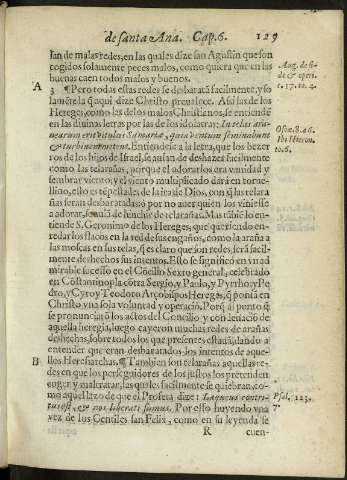 de santa Ana. Cap. 6. 129
san de malas redes, en las quales dize san Agustin que son
cogidos solamente peces malos, como quiera que en las
buenas caen todos malos y buenos.
Aug. de fi-
de & operi.
c. 17. to. 4.
A 3 ¶ Pero todas estas redes se desbaratã facilmente, y so
lamẽte la q̃ aqui dize Christo preualece. Assi las de los
Hereges, como las de los malos Christianos, se entiendẽ
en las diuinas letras por las de los idolatras: In telas ara-
nearum erit vitulus Samariæ, quia ventum seminabunt
& turbinem metent. Entiendese a la letra, que los bezer
ros de los hijos de Israel, se auian de deshazer facilmente
como las telarañas, porque el adorarlos era vanidad y
sembrar viento; y el viento multiplicado dará en torue-
llino, esto es tẽpestades de la ira de Dios, con q̃ las telara
ñas seran desbaratadas: ò por no auer quien los viniesse
a adorar, de telarañas. Mas tãbiẽ lo en-
tiende S. Geronimo de los Hereges, que queriendo en-
redar los flacos en la red de sus engaños, como la araña a
las moscas en sus telas, q̃ es claro que son redes, serã facil-
mente deshechos sus intentos. Esto se significó en vn ad
mirable sucesso en el Cõcilio Sexto general, celebrado
en Costantinopla cõtra Sergio, y Paulo, y Pyrrho y Pe
dro, y Cyro y Teodoro Arçobispos Hereges, q̃ poniã en
Christo vna sola voluntad y operaciõ. Porq̃ al punto q̃
se pronunciarõ los actos del Concilio y condenació de
aquella heregia, luego cayeron muchas redes de arañas
deshechas, sobre todos los que presentes estauã, dando a
entender que eran desbaratados los intentos de aque-
Oseæ. 8. a 6.
ibi Hieron.
to. 6.
B llos Heresiarchas. ¶ Tambien son telarañas aquellas re-
des en que los perseguidores de los justos los pretenden
coger y maltratar, las quales facilmente se quiebran, co-
mo aquel lazo de que el Profeta dize: Laqueus contri-
tus est, & nos liberati sumus. Por esso huyendo vna
vez de los Gentiles san Felix, como en su leyenda se
Psal. 123.
7
R cuen-